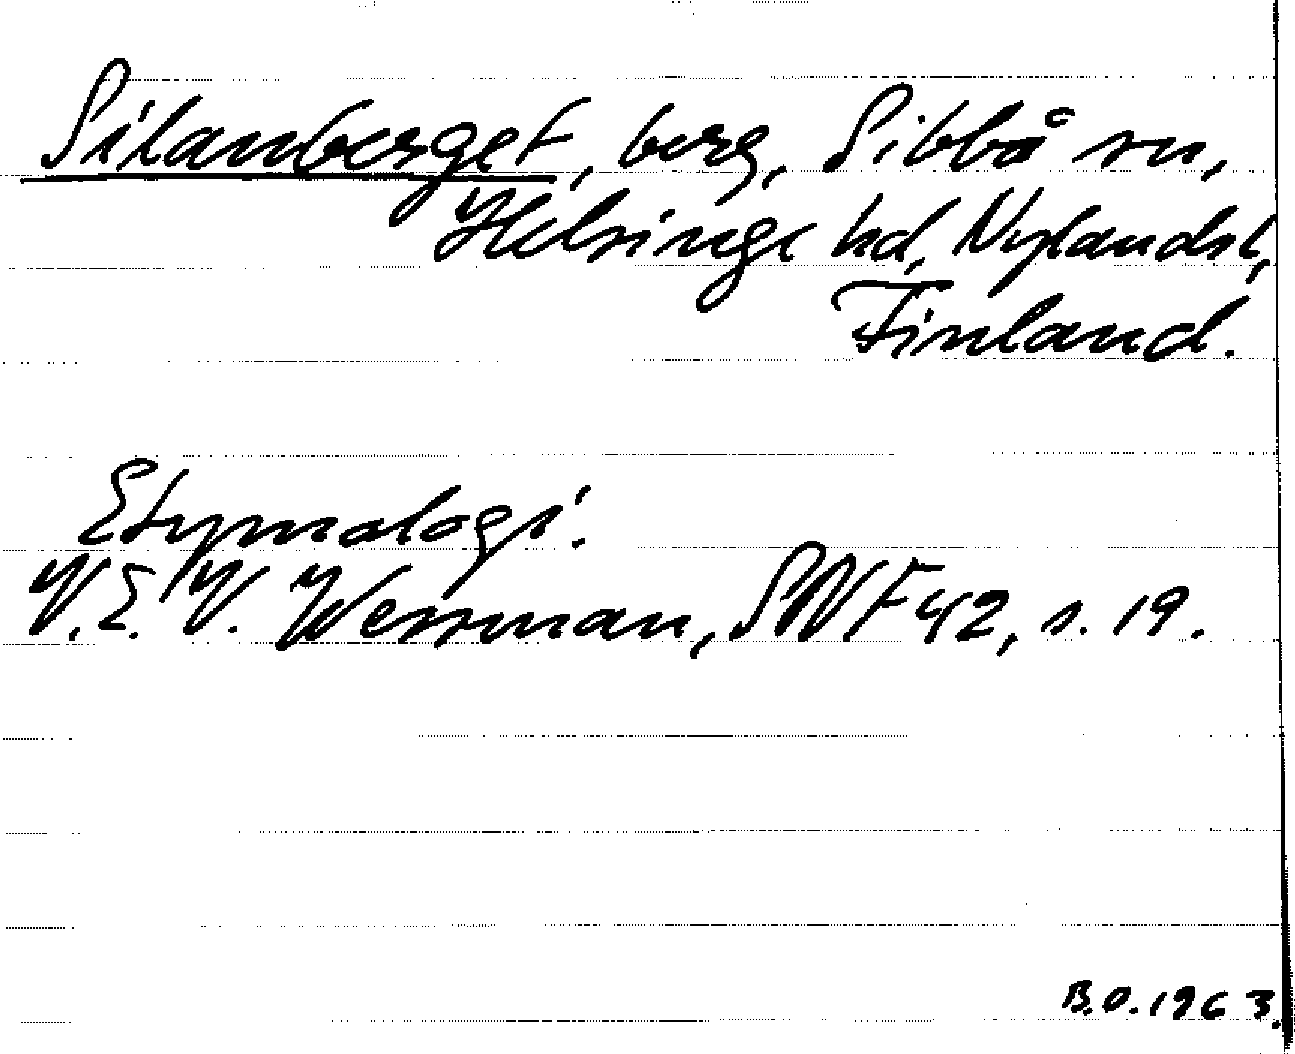 Silanberget, berg, Sibbå sn,
Helsinge hd, Nylands l,
Finland.
Etymologi:
V.E.V. Wessman, SNF 42, s. 19.
B.O. 1963.